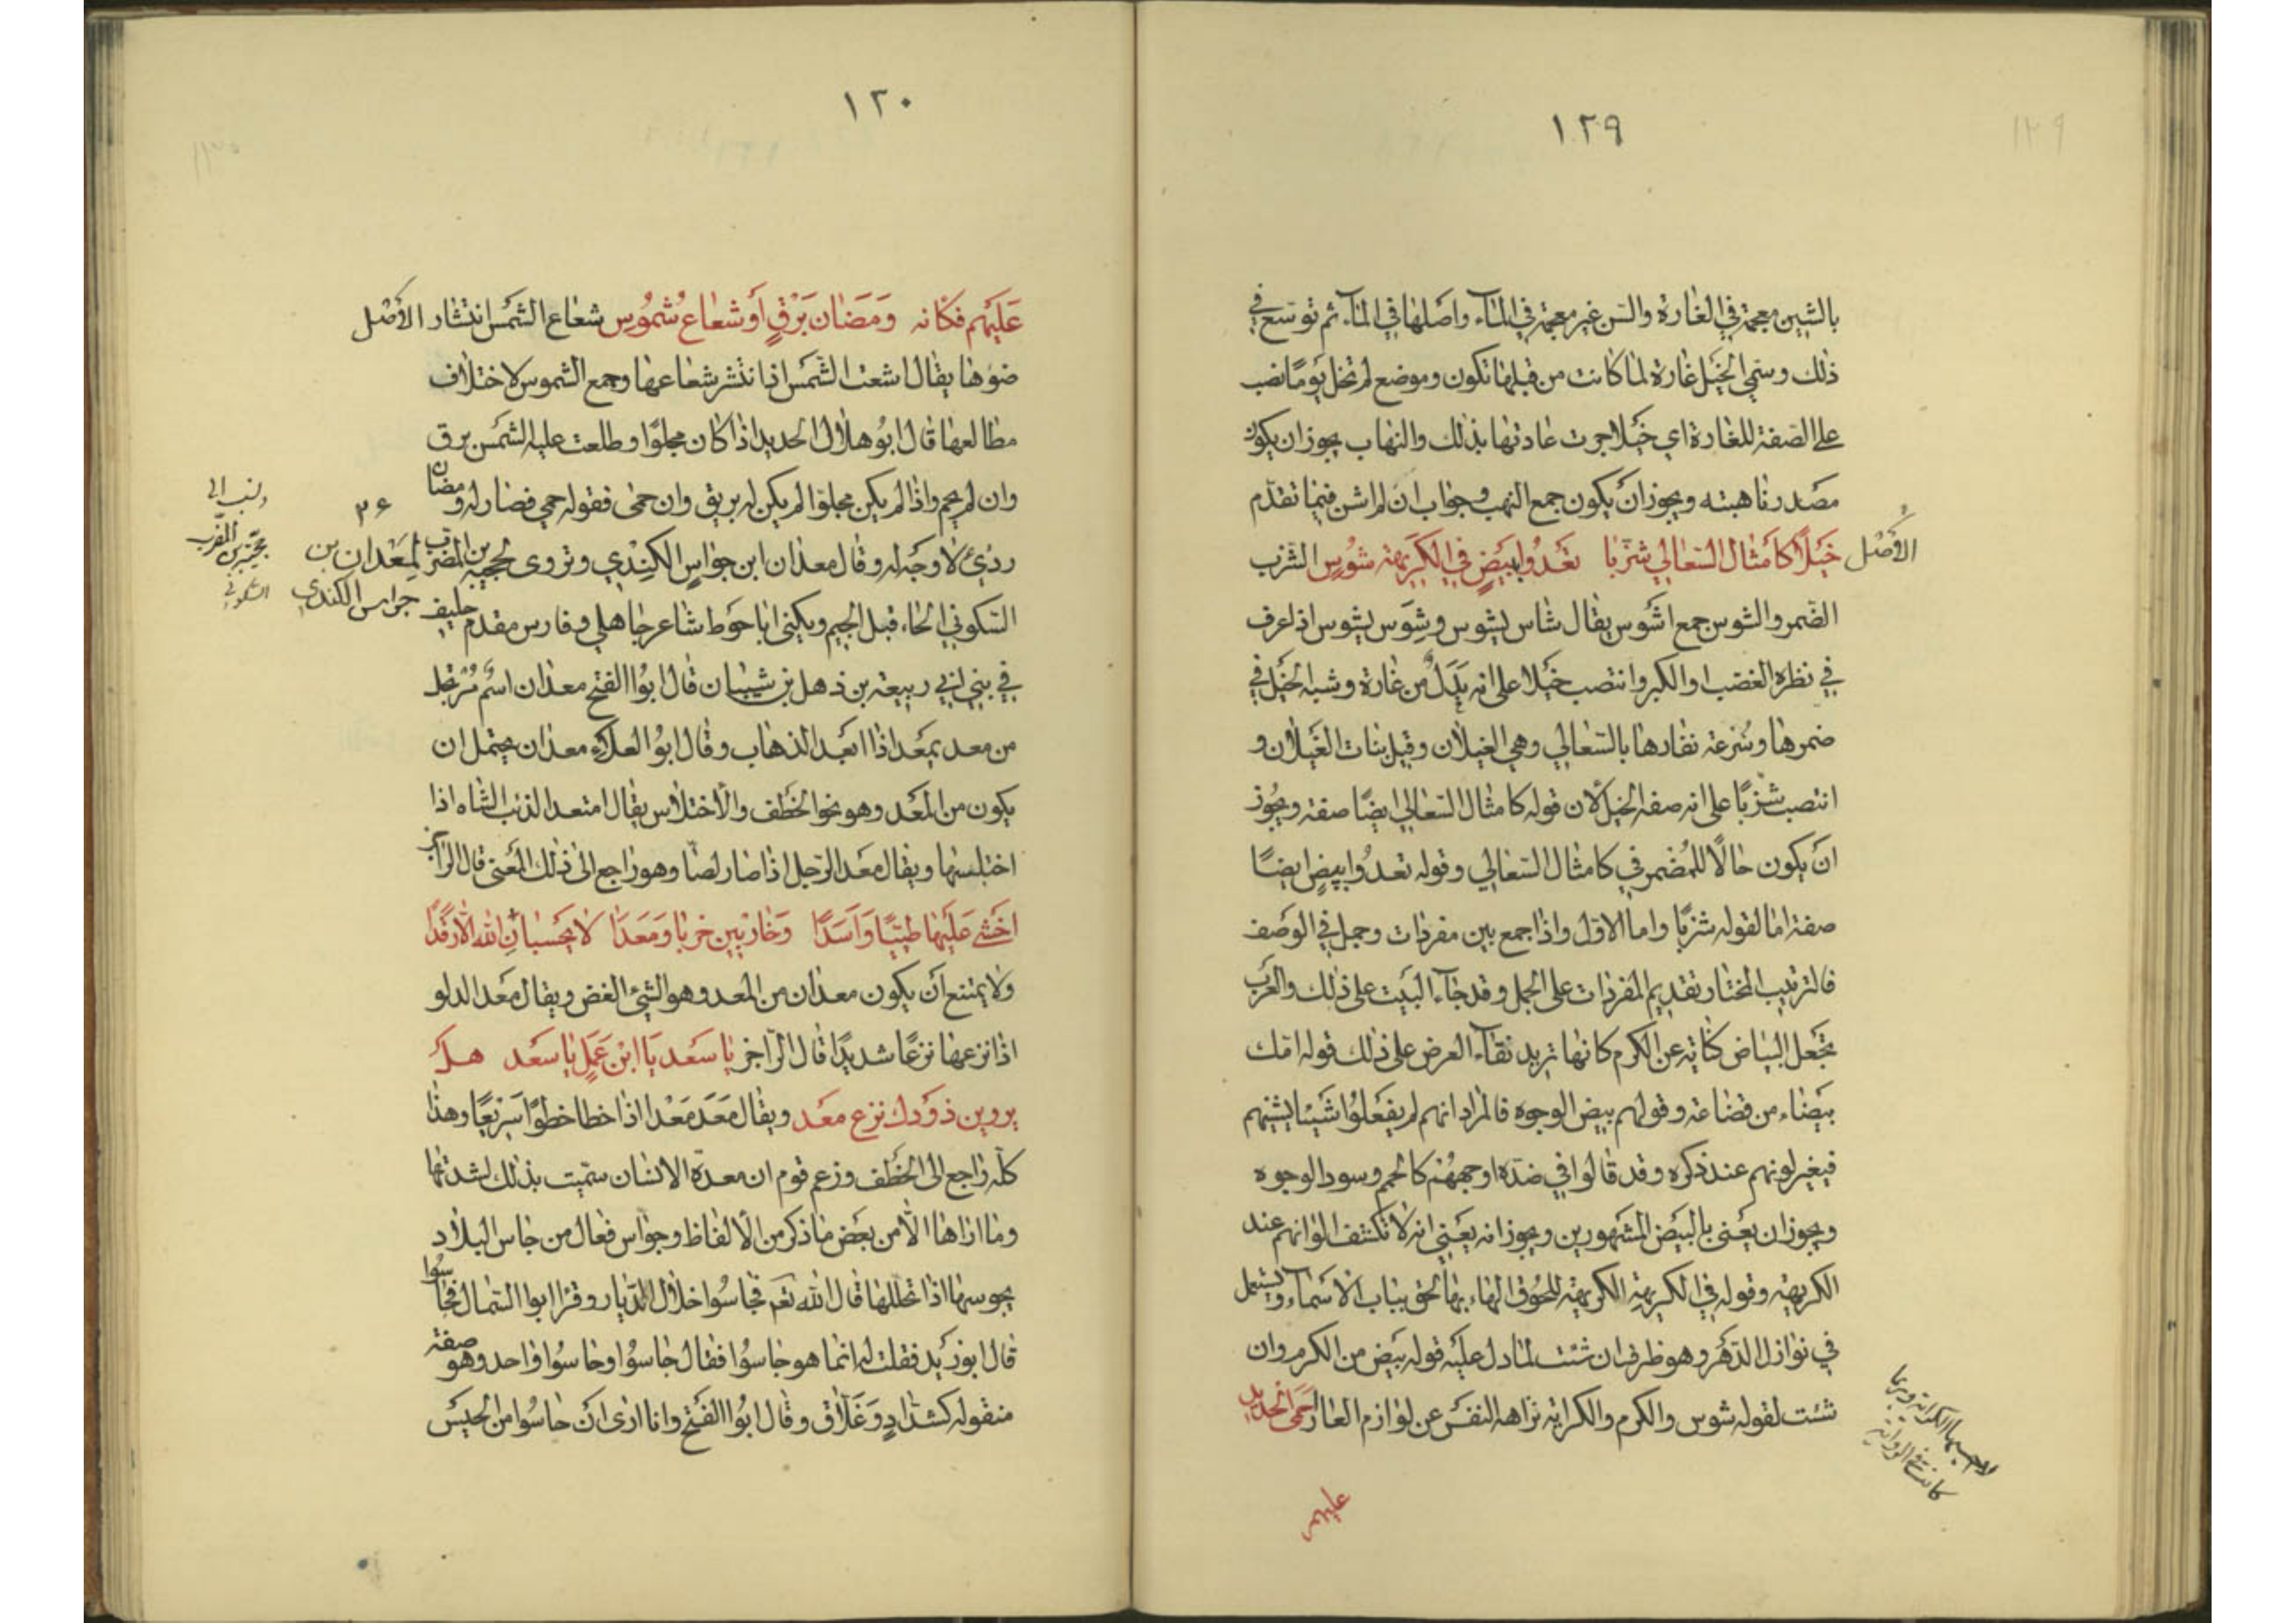 ١٢٩
١٢٩
بالشين معجمة في الغارة والسن غير معجمة في المآء واصلها في المآء ثم توسع في
ذلك وسمي الخيل غارة لما كانت من قبلها تكون وموضع لم تخل يومًا نصب
على الصفة للغارة اي خيلا جرت عادتها بذلك والنهاب يجوز ان يكون
مصدر ناهبته ويجوز ان يكون جمع النهب وجواب ان لم اشن فيما تقدم
الأصل خَيْلًا كَأمْثال السَّعالي شزّبا تَعْدُوا ببَيْضٍ في الكَريهة شُوسٍ الشزب
الضمر والشوس جمع اشوس يقال شاس يشوس وشوس يشوس اذ اعرف
في نظره الغضب او الكبر وانتصب خيلا على انه بدل من غارة وشبه الخيل في
ضمرها وسرعة نفارها بالسعالي وهي الغيلان وقيل بنات الغيلان و
انتصب شزبًا على انه صفة الخيل لان قوله كامثال السعالي ايضًا صفة ويجوز
ان يكون حالًا للمضمر في كامثال السعالي وقوله تعدوا ببيض ايضًا
صفة اما لقوله شزبًا واما الاول واذا جمع بين مفردات وجمل في الوصف
فالترتيب المختار تقديم المفردات على الجمل وقد جآء البيت على ذلك والعرب
تجعل البياض كناية عن الكرم كانها تريد نقآء العرض على ذلك قوله امك
بيضاء من قضاعة وقولهم بيض الوجوه فالمراد انهم لم يفعلوا شيئا يشينهم
فيغير لونهم عند ذكره وقد قالوا في ضده اوجههم كالحمم وسود الوجوه
ويجوز ان يعنى بالبيض المشهورين ويجوز انه يعني انه لا تكشف الوانهم عند
الكريهة وقوله في الكريهة الكريهة للحوق الهاء بها لحق بباب الاسمآء ويستعمل
في نوازل الدهر وهو ظرف ان شئت لما دل عليه قوله بيض من الكرم وان
شئت لقوله شوس والكرم والكراية نزاهة النفس عن لوازم العار حَمَى الحديد
كانت في الرواية
عليهم
١٢٠
١٣٠
عَلَيْهِم فكَانه وَمَضَان بَرْقٍ أو شعاع شُمُوسٍ شعاع الشمس انتشار الأصل
ضوءها يقال اشعت الشمس اذا انتشر شعاعها وجمع الشموس لاختلاف
مطالعها قال ابو هلال الحديد اذا كان مجلوًّا وطلعت عليه الشمس برق
وان لم يحم واذا لم يكن مجلوّا لم يكن له بريق وان حمى فقوله حمي فصار له ومضان
رديء لا وجه له وقال معدان ابن جواس الكندي وتروى لحجية بن المضرب لمعدان بن
جواس الكندي
٣٤
السكوني الحاء قبل الجيم ويكنى ابا حوط شاعر جاهلي وفارس مقدم حليف
في بني ابي ربيعة بن ذهل بن شيبان قال ابو الفتح معدان اسم مرتجل
من معد يمعد اذا ابعد الذهاب وقال ابو العلاء معدان يحتمل ان
يكون من المعد وهو نحو الخطف والاختلاس يقال امتعد الذئب الشاه اذا
اختلسها ويقال معد الرجل اذا صار لصًّا وهو راجع الى ذلك المعنى قال الراجز
اخشى عَلَيها طيّيًا وَأسَدًا وَخارِبين خربا ومَعَدا لا يحسبان الله الا رقدًا
ولا يمتنع ان يكون معدان من المعد وهو الشيء الغض ويقال معد الدلو
اذا نزعها نزعًا شديدًا قال الراجز يا سَعْد يَا ابْن عَمَلٍ يا سَعْد هل
يروين ذودك نزع معد ويقال مَعَدَ مَعْدا اذا خطا خطوًا سريعًا وهذا
كله راجع الى الخطف وزعم قوم ان معدة الانسان سميت بذلك لشدتها
وما اراها الا من بعض ما ذكر من الالفاظ وجواس فعال من جاس البلاد
يجوسها اذا تخللها قال الله تعم فجاسوا خلال الديار وقرا ابو السمال فحاسوا
قال ابو زيد فقلت له انما هو جاسوا فقال جاسوا وحاسوا واحد وهو صفة
منقوله كشدّادٍ وَغَلّاق وقال ابو الفتح وانا ارى ان حاسوا من الحيس